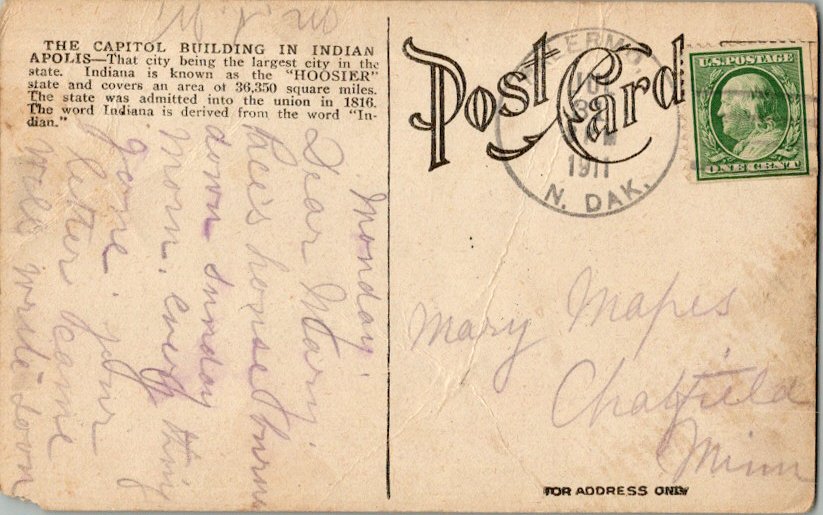 THE CAPITOL BUILDING IN INDIAN
APOLIS—That city being the largest city in the
state. Indiana is known as the "HOOSIER"
state and covers an area of 36,350 square miles.
The state was admitted into the union in 1816.
The word Indiana is derived from the word "In-
dian."
Monday.
Dear Mary.
house burns
down Sunday
Morn. every thing
gone. your
letter came
will write down
Post Card
PALERMO,
1911
N. DAK.
U.S. POSTAGE
ONE CENT
Mary Mapes
Chatfield
Minn
FOR ADDRESS ONLY